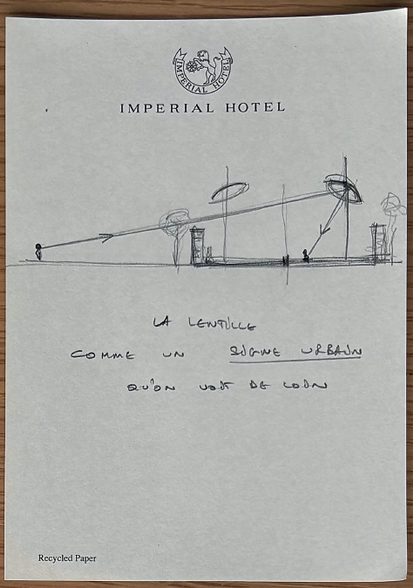 IMPERIAL HOTEL
IMPERIAL HOTEL
LA LENTILLE
COMME UN SIGNE URBAIN
QU'ON VOIT DE LOIN
Recycled Paper